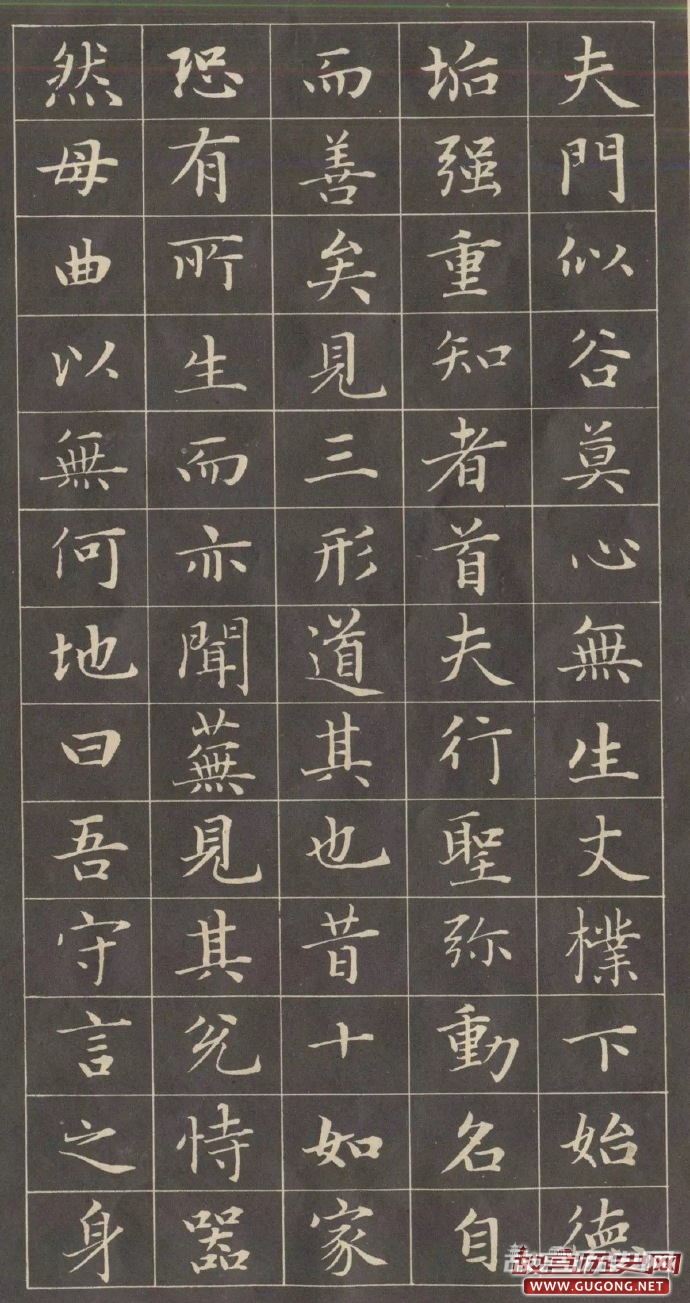 夫門似谷莫心無生丈樸下始德
垢强重知者首夫行聖弥動名自
而善矣見三形道其也昔十如家
恐有所生而亦聞蕪見其兊恃器
然母曲以無何地曰吾守言之身
故宫历史网
WWW.GUGONG.NET